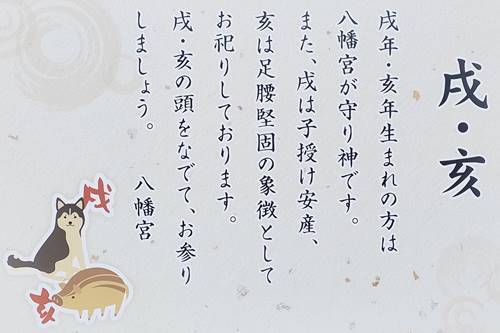 戌・亥
戌年・亥年生まれの方は
八幡宮が守り神です。
また、戌は子授け安産、
亥は足腰堅固の象徴として
お祀りしております。
戌・亥の頭をなでて、お参り
しましょう。
八幡宮
戌
亥